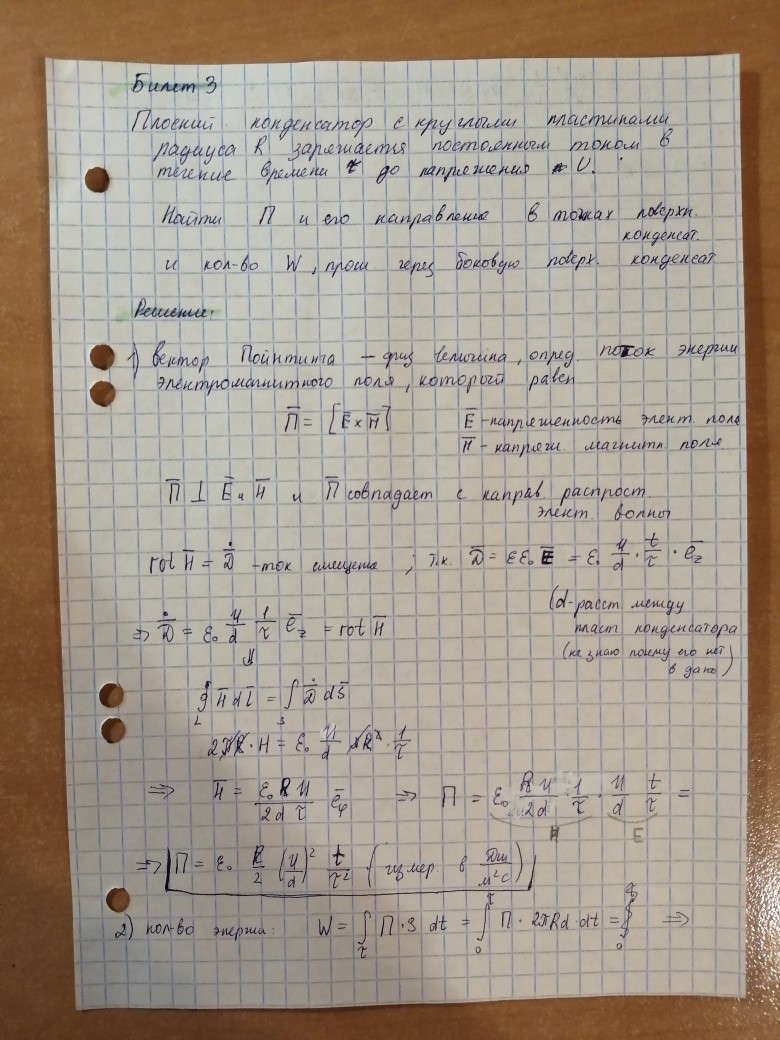 Билет 3
Плоский конденсатор с круглыми пластинами
радиуса R заряжается постоянным током в
течение времени τ до напряжения U.
Найти П и его направление в точках поверхн.
конденсат.
и кол-во W, прош. через боковую поверх. конденсат
Решение:
1) вектор Пойнтинга — физ величина, опред. поток энергии
электромагнитного поля, который равен
П̅ = [E̅ × H̅]
E̅ - напряженность элект. поля
H̅ - напряж. магнитн поля
П̅ ⊥ E̅ и H̅ и П̅ совпадает с направ. распрост.
элект. волны
rot H̅ = Ḋ̅ - ток смещения ; т.к. D̅ = εε₀ E̅ = ε₀ U/d · t/τ · e̅_z
(d - расст между
пласт конденсатора
(не знаю почему его нет
в дано)
⇒ Ḋ̅ = ε₀ U/d 1/τ e̅_z = rot H̅
⇓
∮_L H̅ dl̅ = ∫_S Ḋ̅ ds̅
2πR · H = ε₀ U/d πR² · 1/τ
⇒ H̅ = ε₀ R U / 2d τ e̅_φ ⇒ П = ε₀ R U / 2d · 1/τ · U/d t/τ =
H E
⇒ П = ε₀ R/2 (U/d)² t/τ² (измер. в Дж/м²с)
2) кол-во энергии: W = ∫_τ П · S dt = ∫₀^τ П · 2πRd · dt = ∫₀ ⇒